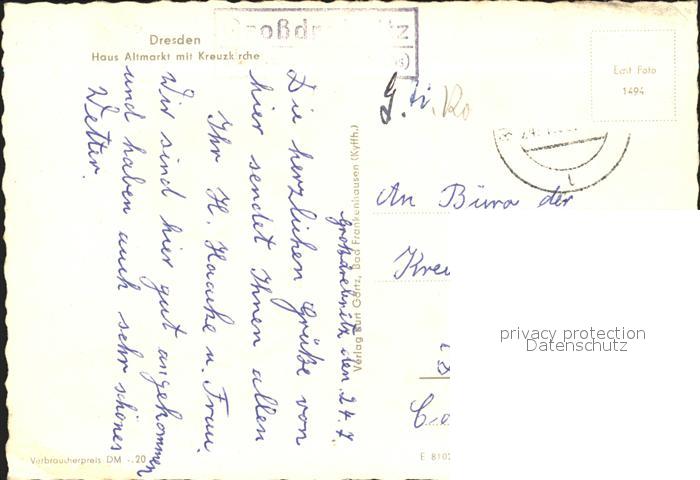 Dresden
Haus Altmarkt mit Kreuzkirche
Großdrebnitz den 24.7.
Die herzlichen Grüße von
hier sendet Ihnen allen
Ihr H. Haacke u. Frau.
Wir sind hier gut angekommen
und haben auch sehr schönes
Wetter.
Verlag Kurt Görtz, Bad Frankenhausen (Kyffh.)
Verbraucherpreis DM -.20
Echt Foto
1494
An Büro der
privacy protection
Datenschutz